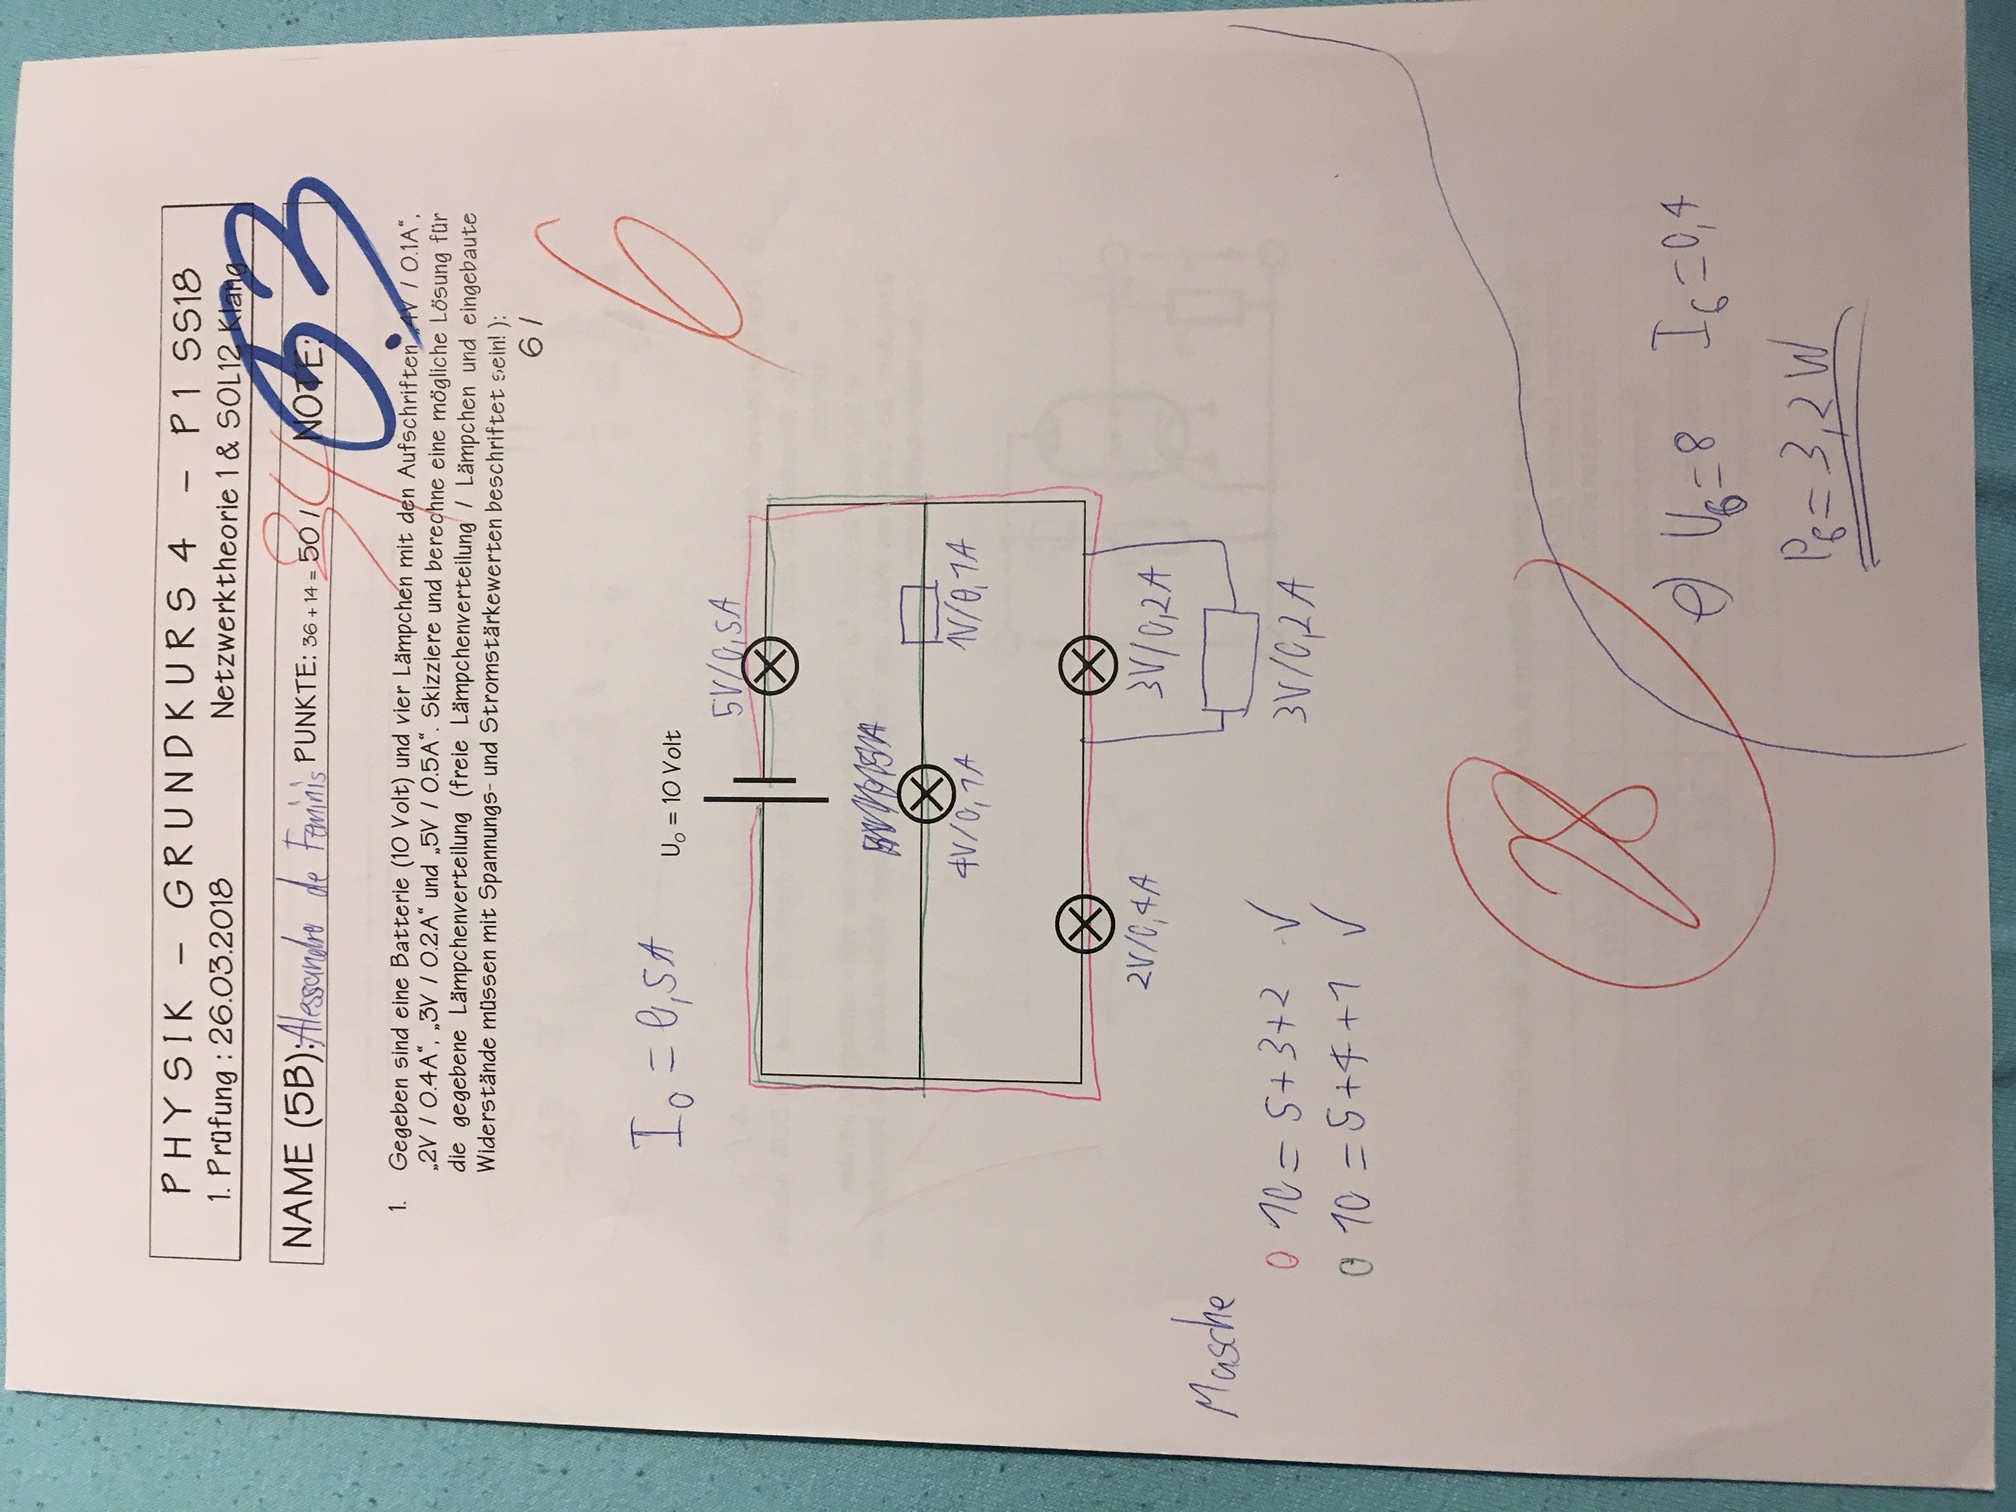 PHYSIK – GRUNDKURS 4 – P1 SS18
1. Prüfung : 26.03.2018 Netzwerktheorie 1 & SOL12 Klang
NAME (5B): Alessandro de Feminis PUNKTE: 36 + 14 = 50 / 34 NOTE: 03
1. Gegeben sind eine Batterie (10 Volt) und vier Lämpchen mit den Aufschriften „4V / 0.1A“,
„2V / 0.4A“, „3V / 0.2A“ und „5V / 0.5A“. Skizziere und berechne eine mögliche Lösung für
die gegebene Lämpchenverteilung (freie Lämpchenverteilung / Lämpchen und eingebaute
Widerstände müssen mit Spannungs- und Stromstärkewerten beschriftet sein! ):
6 /
6
I0 = 0,5A
U0 = 10 Volt
5V/0,5A
4V/0,1A
1V/0,1A
2V/0,4A
3V/0,2A
Masche
0 10 = 5+3+2 ✓
3V/0,2A
0 10 = 5+4+1 ✓
28
e) U6=8 I6=0,4
P6=3,2W